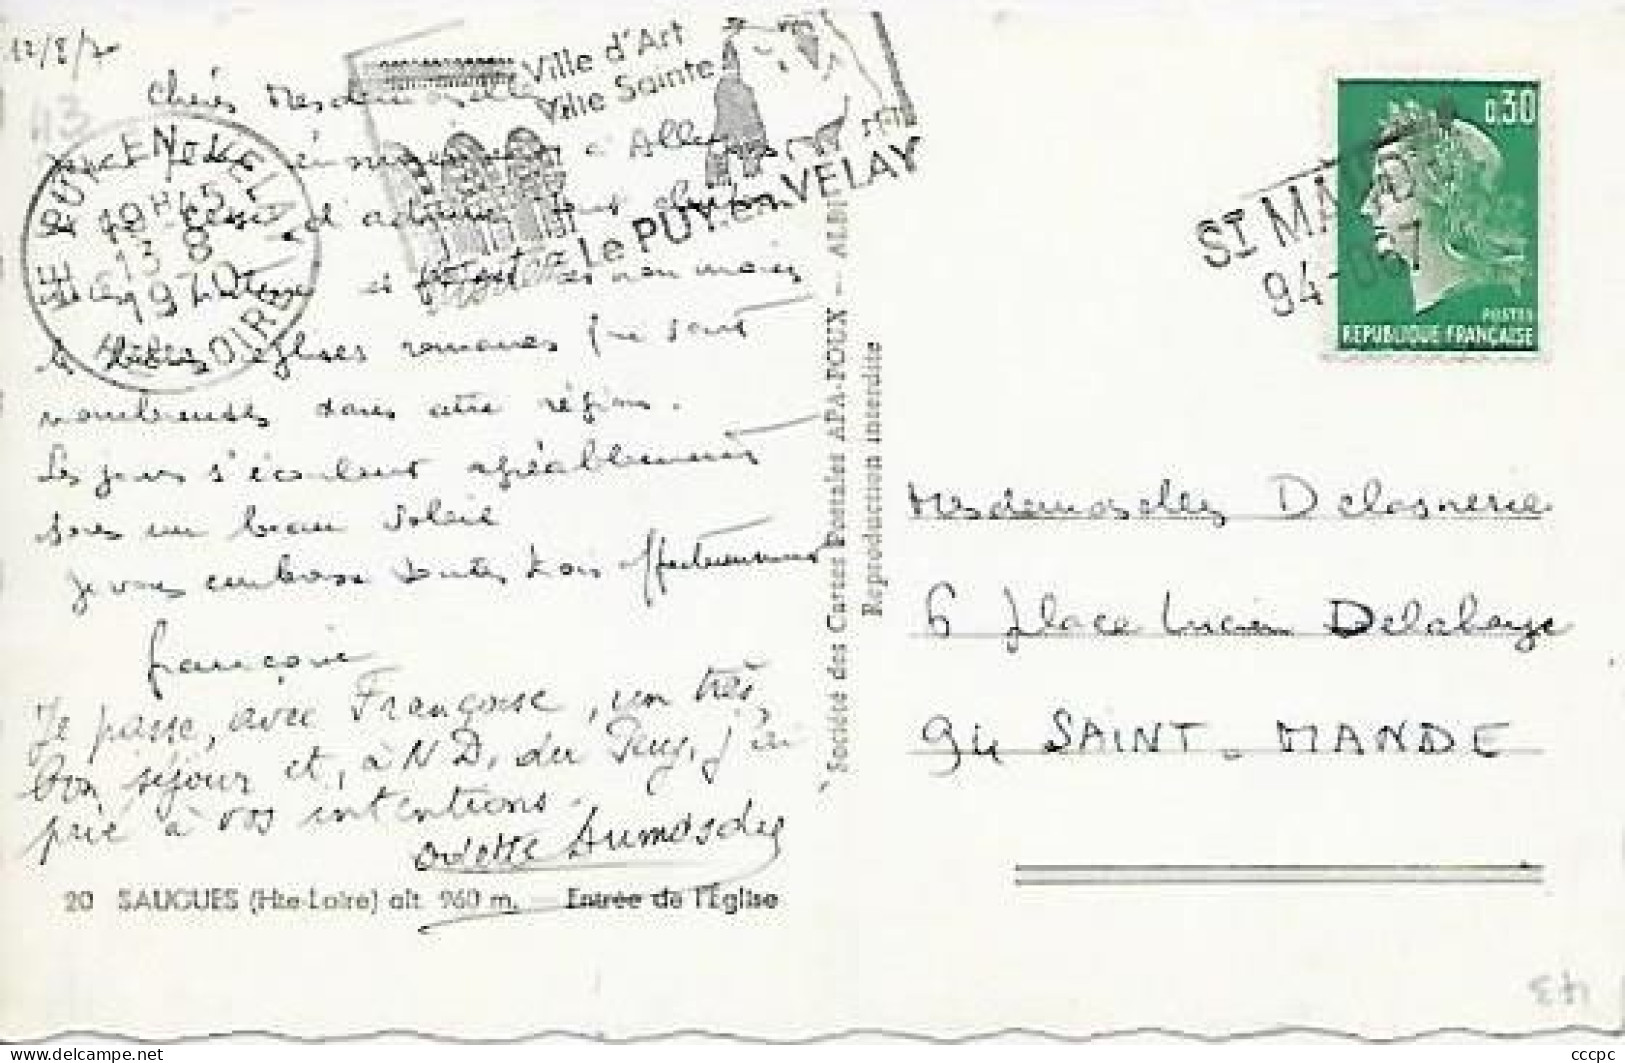 12/8/70
43
Chères Mesdemoiselles
à Allègre
d'admirer
et
belles églises romanes que sont
nombreuses dans cette région.
Les jours s'écoulent agréablement
sous un beau soleil
Je vous embrasse toutes trois affectueusement
Françoise
Je passe, avec Françoise, un très
bon séjour et, à N.D. du Puy, j'ai
prié à vos intentions.
Odette
20 SAUGUES (Hte-Loire) alt. 960 m. — Entrée de l'Église
LE PUY EN VELAY
18H45
13-8
1970
Hte LOIRE
Ville d'Art
Ville Sainte
le PUY.en.VELAY
Société des Cartes Postales APA-POUX — ALBI
Reproduction interdite
0,30
POSTES
REPUBLIQUE FRANÇAISE
ST MANDE
94-067
Mesdemoiselles Delasnerie
6 place Lucien Delahaye
94 SAINT-MANDE
43
cccpc